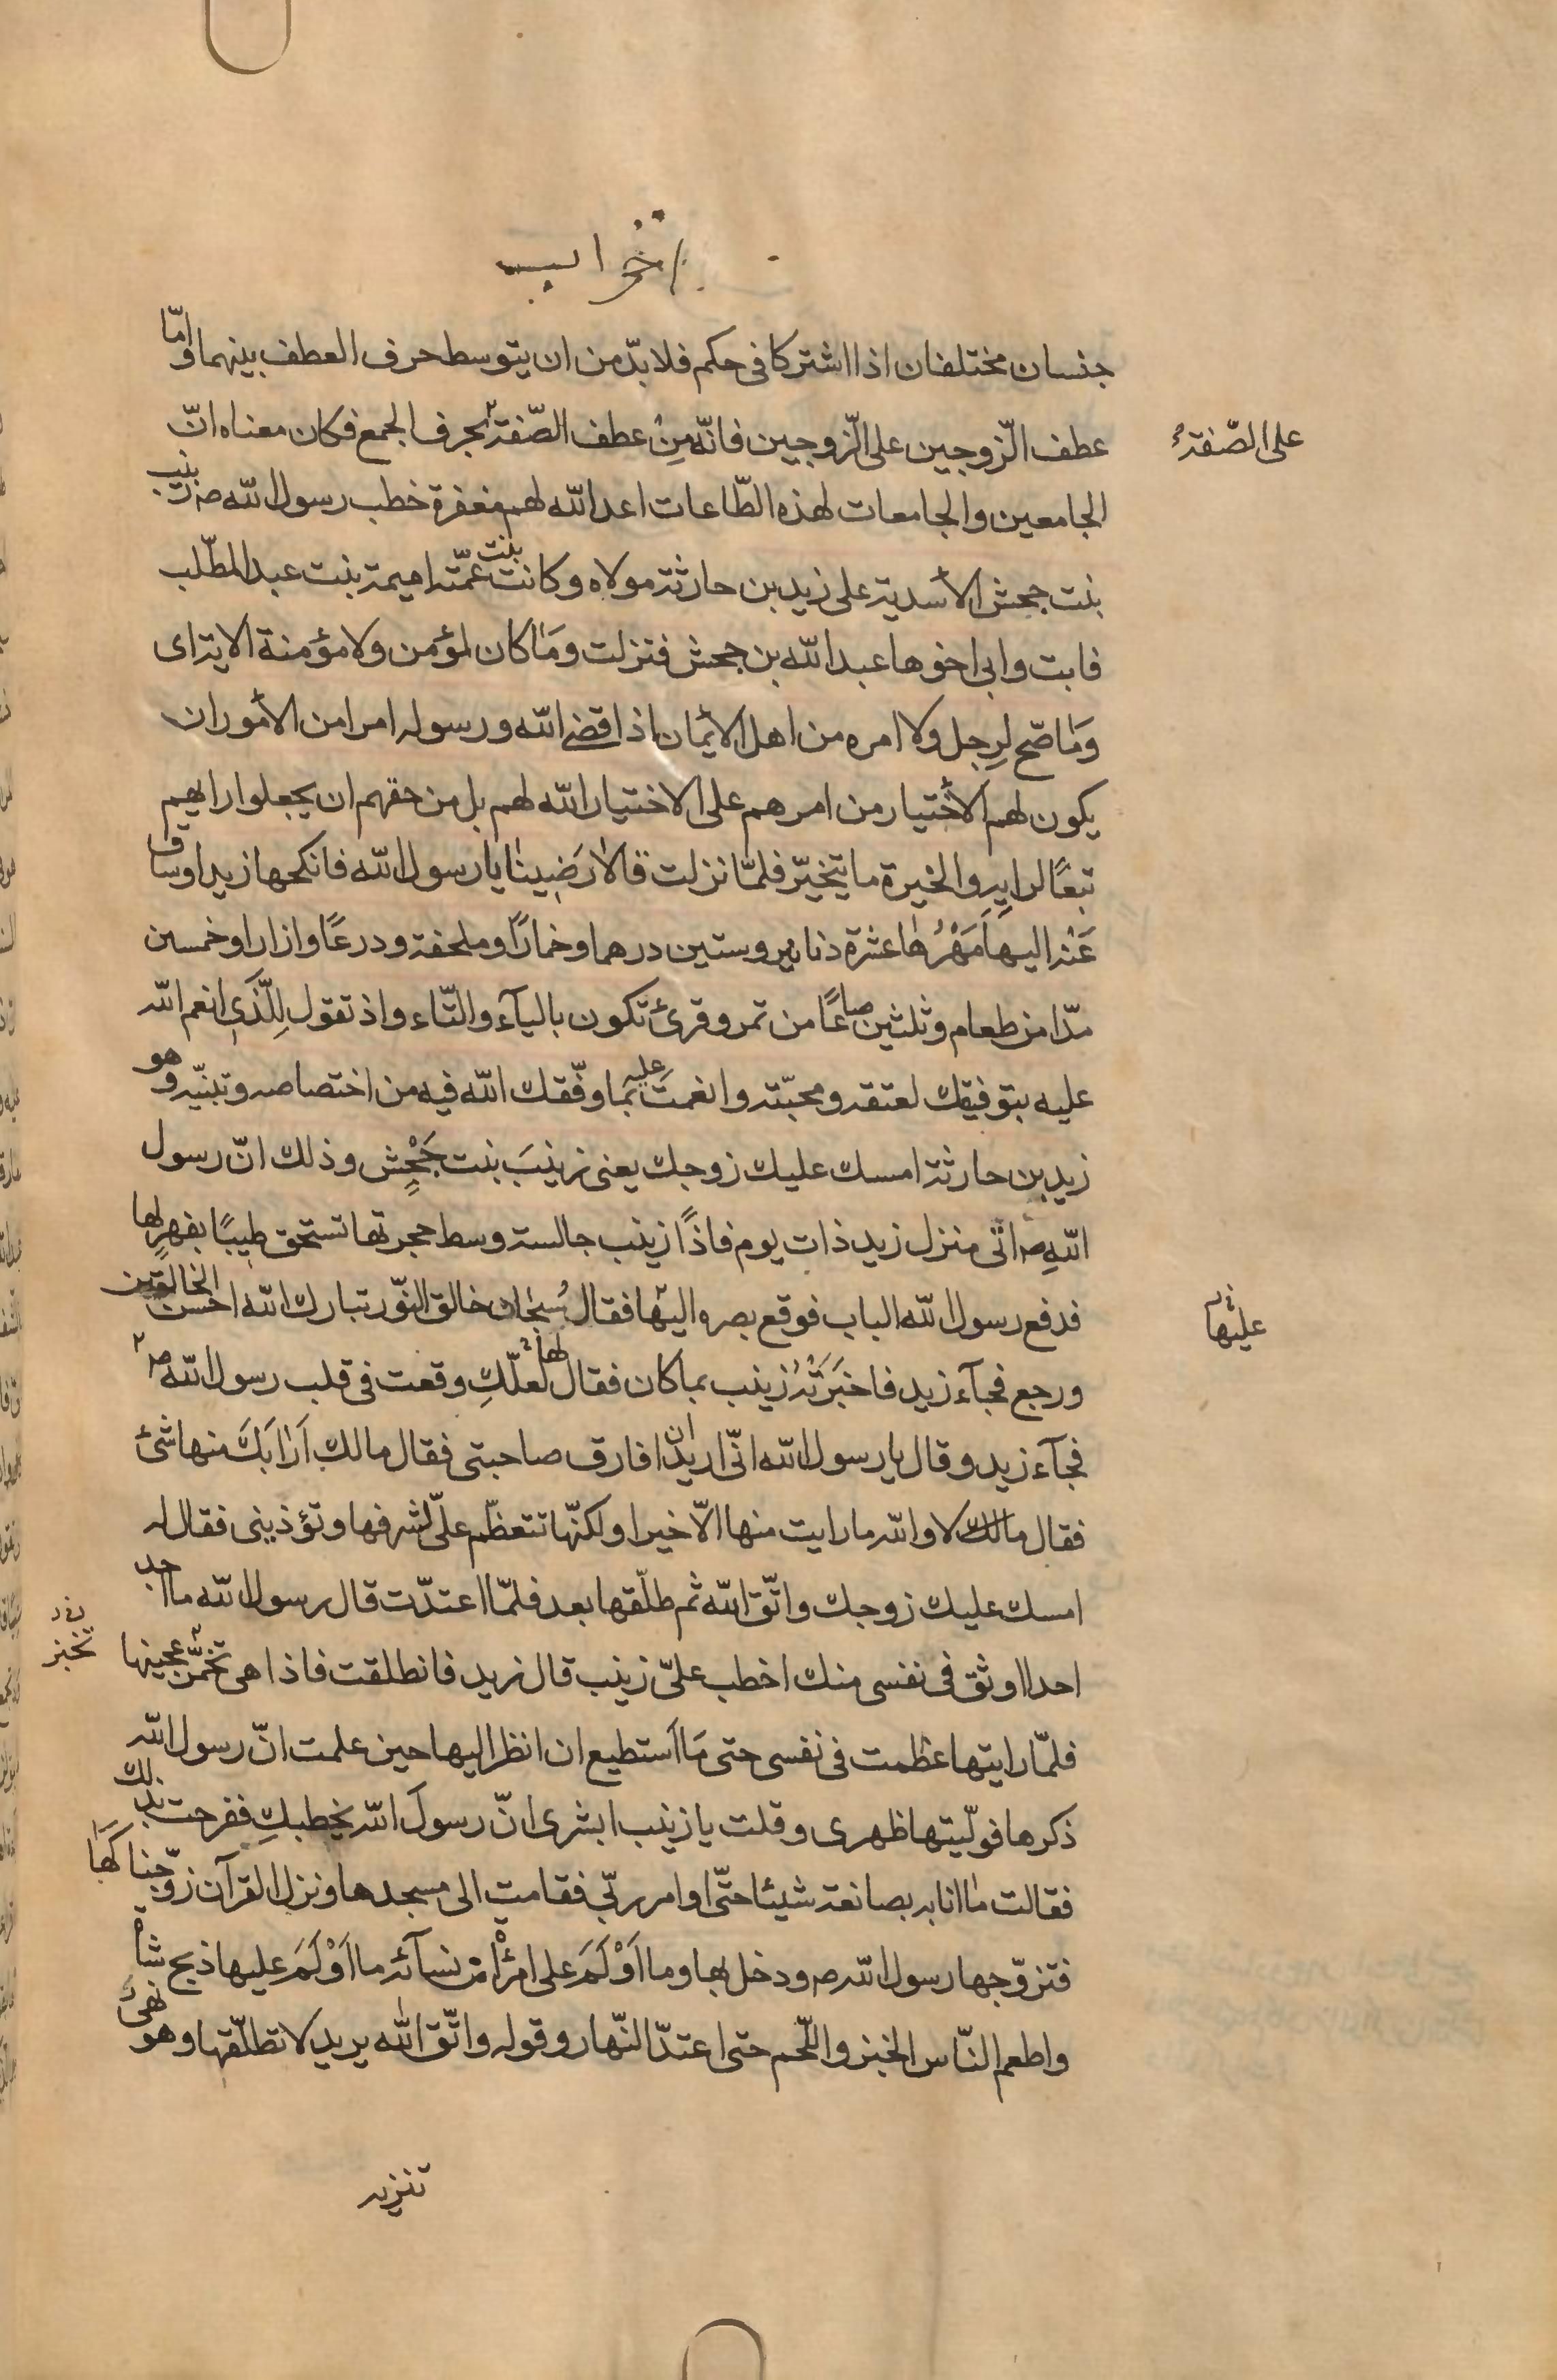 احزاب
جنسان مختلفان اذا اشتركا فى حكم فلا بدّ من ان يتوسط حرف العطف بينهما وامّا
عطف الزّوجين على الزّوجين فانّه مِنْ عطف الصّفة بحرف الجمع فكان معناه انّ
على الصّفة
الجامعين والجامعات لهذه الطّاعات اعد الله لهم مغفرة خطب رسول الله صم زينب
بنت جحش الأسدية على زيد بن حارثة مولاه وكانت بنت عمّته اميمة بنت عبد المطّلب
فابت وابى اخوها عبد الله بن جحش فنزلت وَمَا كان لمؤمن ولا مؤمنة الاية اى
وَمَا صّح لِرجل ولا امره من اهل الأيمان اذا قضى الله ورسوله امرا من الأمور ان
يكون لهم الأختيار من امرهم على الاختيار الله لهم بل من حقهم ان يجعلوا رايهم
تبعًا لرايِهِ والخيرة ما يتخيّر فلمّا نزلت قالا رَضِينا يا رسول الله فانكحها زيدا وساق
عَنْه اليهَا مَهْرُهَا عشرة دنانير وستين درهما وخمارًا وملحفة ودرعًا وازارا وخمسين
مدّا من طعام وثلثين صاعًا من تمر وقرئ تكون باليآء والتّاء واذ تقول لِلَّذى انعم الله
عليه بتوفيقك لعتقه ومحبّته وانعمتَ عليه بما وفّقك الله فيه من اختصاصه وتبنيّه وهو
زيد بن حارثة امسك عليك زوجك يعنى زينبَ بنت جَحْشٍ وذلك انّ رسول
اللهِ صم اتى منزل زيد ذات يوم فاذًا زينب جالسة وسط حجرتها تستحق طيبًا بفهرٍ لها
فدفع رسول الله الباب فوقع بصره اليها فقال سُبحان خالق النّور تبارك الله احسن الخالقين
عليها
ورجع فجآء زيد فاخبَرَتْهُ زينب بما كان فقال لها لعلّكِ وقعت فى قلب رسول الله صم
فجآء زيد وقال يا رسول الله انّى اريد ان افارق صاحبتى فقال مالك اَرَابَكَ منها شئ
فقال مالك لا والله ما رايت منها الّا خيرا ولكنّها تتعظّم علىّ لشرفها وتؤذينى فقال له
امسك عليك زوجك واتّق الله ثم طلّقها بعد فلمّا اعتدّت قال رسول الله ما اجد
احدا اوثق فى نفسى منك اخطب علىّ زينب قال زيد فانطلقت فاذا هى تخمّر عجينها
تخبز
فلمّا رايتها عظمت فى نفسى حتى مَا اَستطيع ان انظر اليها حين علمت انّ رسول الله
ذكرها فولّيتها ظهرى وقلت يا زينب ابشرى انّ رسولَ الله يخطبكِ ففرحت بذلك
فقالت ما انا به بصانعة شيئا حتّى اوامر ربّى فقامت الى مسجدها ونزل القرآن زوّجناكَهَا
فتزوّجها رسول الله صم ودخل بها وما اَوْلَمَ على امرْأة من نسآئه ما اَوْلَمَ عليها ذبح شاة
واطعم النّاس الخبز واللّحم حتى اعتدّ النّهار وقوله واتّق الله يريد لا تطلّقها وهو نهىُ
تنزيه